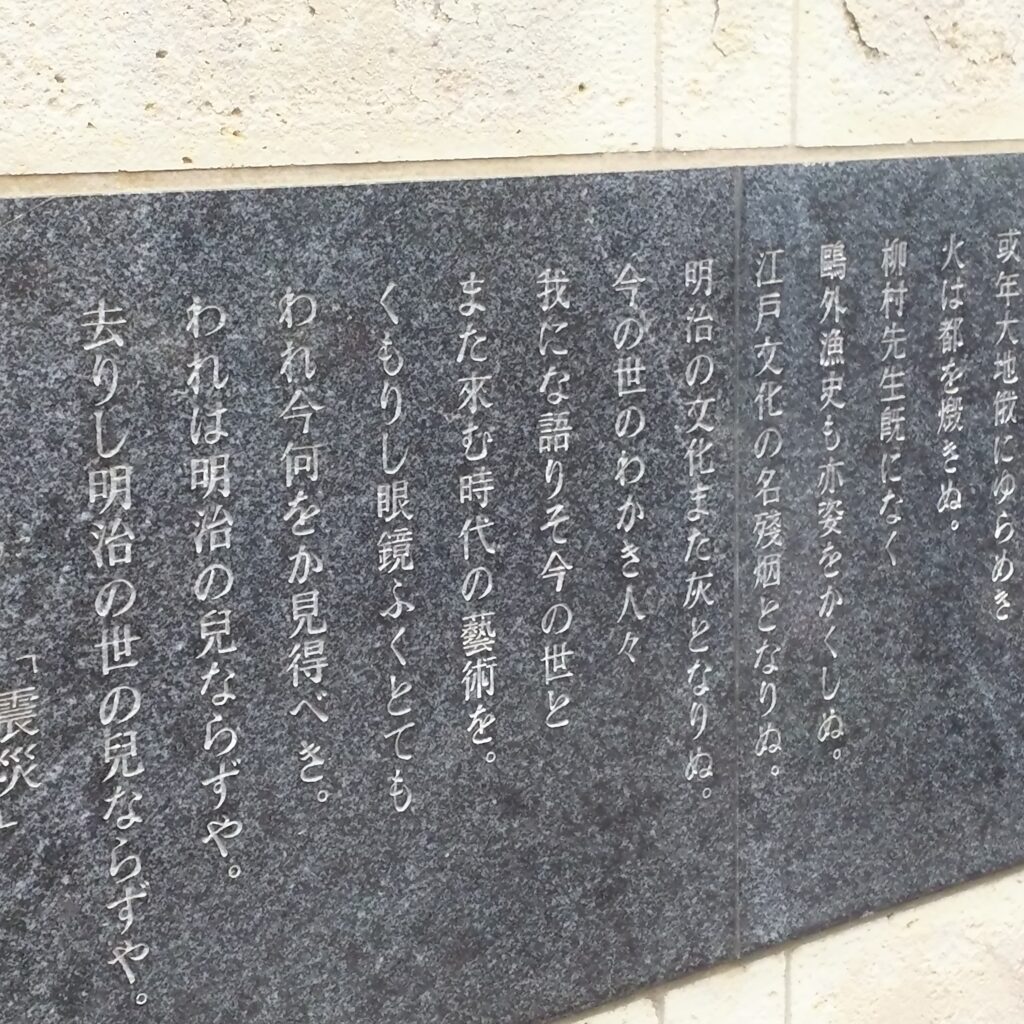 或年大地俄にゆらめき
火は都を燬きぬ。
柳村先生既になく
鷗外漁史も亦姿をかくしぬ。
江戸文化の名殘烟となりぬ。
明治の文化また灰となりぬ。
今の世のわかき人々
我にな語りそ今の世と
また來む時代の藝術を。
くもりし眼鏡ふくとても
われ今何をか見得べき。
われは明治の兒ならずや。
去りし明治の世の兒ならずや。
「震災」